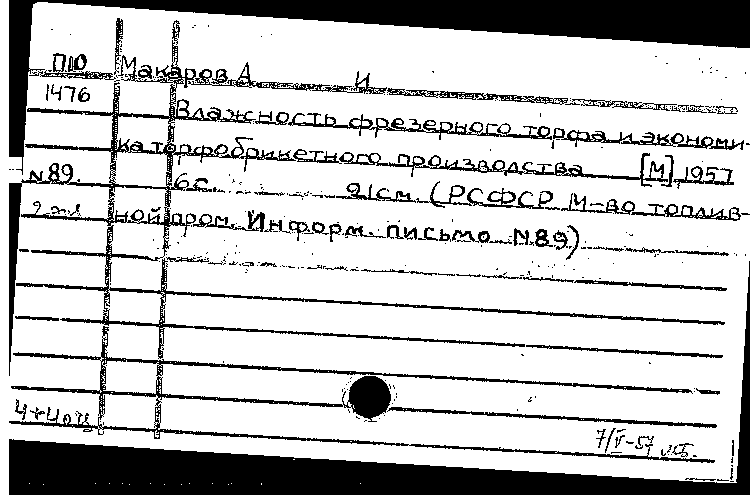 ПЮ Макаров А И
1476 Влажность фрезерного торфа и экономи-
ка торфобрикетного производства [М], 1957
N89. 6 с. 21 см. (РСФСР М-во топлив-
2 экз ной пром. Информ. письмо N89)
7/V-57